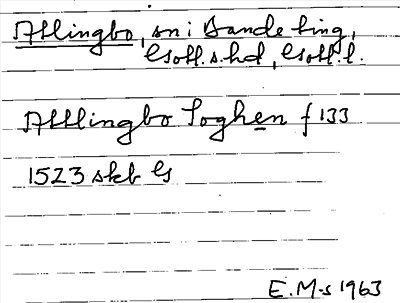 Allingbo, sn i Bande ting,
Gotl.s.hd, Gotl.l.
Attlingbo Soghen f 133
1523 skb G
E.M-s 1963